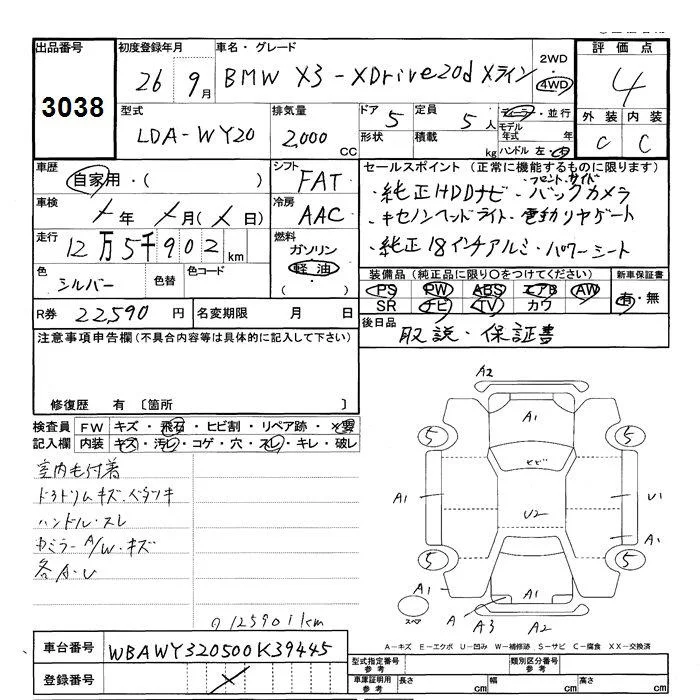 出品番号
3038
初度登録年月
26年 9月
車名・グレード
BMW X3 - XDrive20d Xライン
2WD
4WD
評価点
4
外装 内装
C C
型式
LDA-WY20
排気量
2,000 CC
ドア 5
形状
定員 5人
積載 kg
ディーラー・並行
モデル年式 年
ハンドル 左・右
車歴
自家用・( )
シフト
FAT
車検
年 月( 日)
冷房
AAC
走行
12万5千902 km
燃料
ガソリン
軽油
( )
色
シルバー
色替
色コード
R券 22,590円
名変期限 月 日
セールスポイント (正常に機能するものに限ります)
フロント、サイド
・純正HDDナビ・バックカメラ
・キセノンヘッドライト・電動リヤゲート
・純正18インチアルミ・パワーシート
装備品(純正品に限り○をつけてください)
新車保証書
PS PW ABS エアB AW
SR ナビ TV カワ
有・無
後日品
取説・保証書
注意事項申告欄(不具合内容等は具体的に記入して下さい)
修復歴 有 〔箇所 〕
検査員記入欄
FW キズ・飛石・ヒビ割・リペア跡・×要
内装 キズ・汚レ・コゲ・穴・スレ・キレ・破レ
室内毛付着
ドアトリムキズ、ベタツキ
ハンドル・スレ
カミラー A/W・キズ
各A・U
125901km
A2
A1
5 5
ヒビ
A1 U1
U2
A1
5 5
A1 A1 A1
スペア
A A3 A2
A-キズ E-エクボ U-凹み W-補修跡 S-サビ C-腐食 XX-交換済
車台番号 WBAWY320500K39445
登録番号
型式指定番号 参考
類別区分番号 参考
車庫証明用 参考 長さ cm 幅 cm 高さ cm